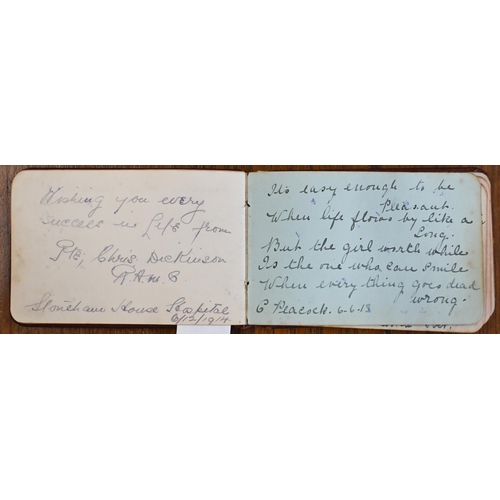 Wishing you every
Success in Life from
Pte, Chris Dickinson
R.A.M.C
Stoneham House Hospital
6/12/1914.
Its easy enough to be
Pleasant.
When life flows by like a
Song.
But the girl worth while
Is the one who can smile
When every thing goes dead
wrong.
E Peacock. 6-6-18